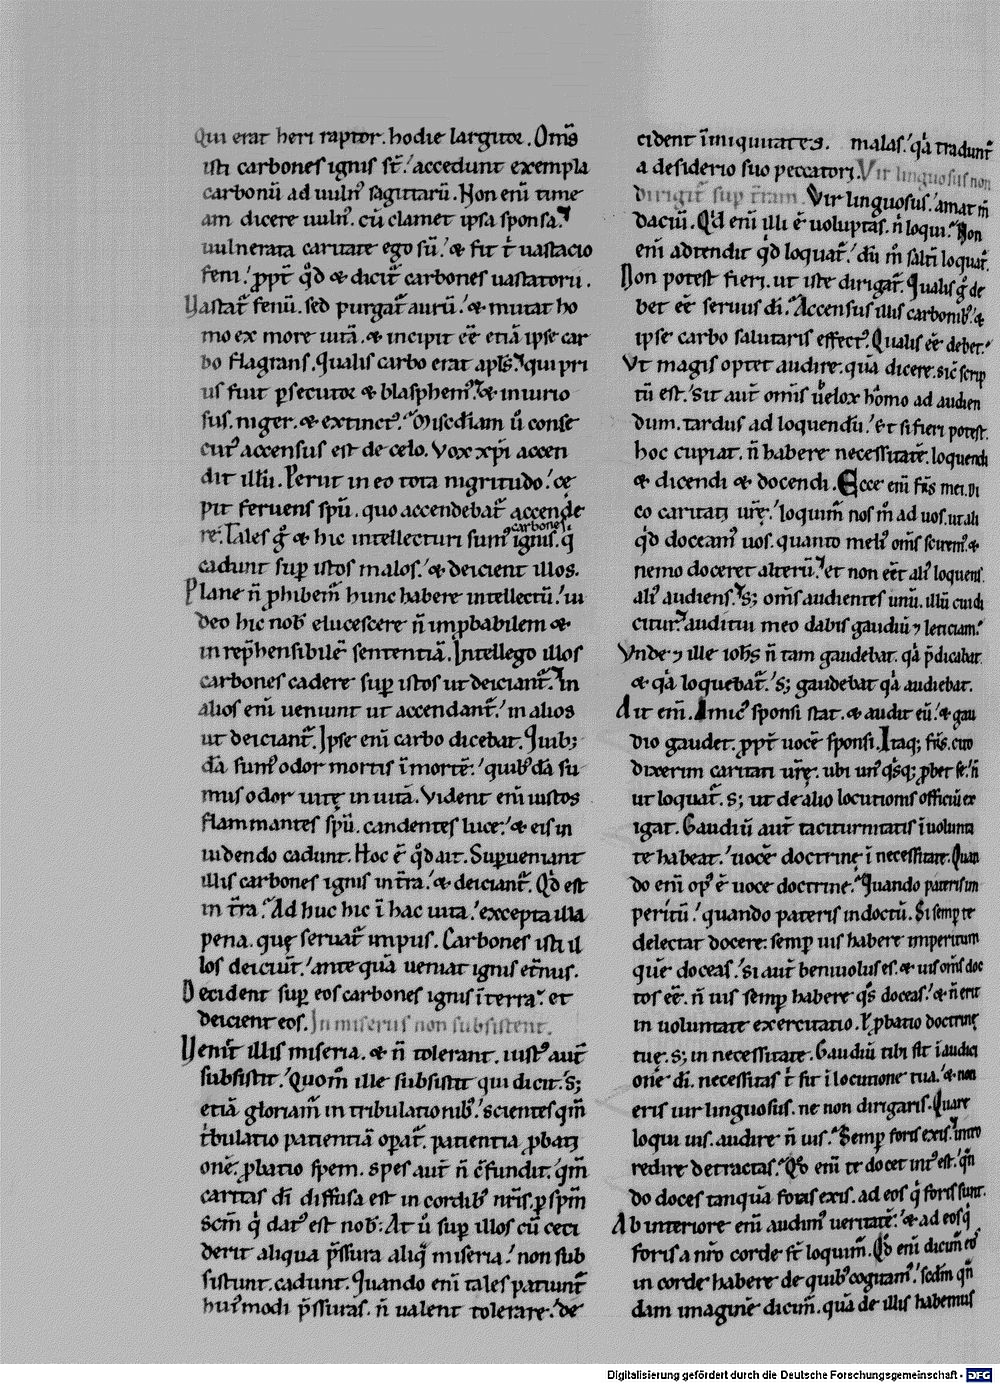 Qui erat heri raptor. hodie largitor. Om̅s
isti carbones ignis st̅. accedunt exempla
carbonū ad uuln᷒ sagittarū. Non eni̅ time
am dicere uuln᷒. cū clamet ipsa sponsa.
uulnerata caritate ego sū. & fit t̅ uastacio
feni. ppt̅ qd̅ & dicit̅ carbones uastatorii.
Vastat̅ fenū. sed purgat̅ aurū. & mutat ho
mo ex more uitā. & incipit ee̅ etiā ipse car
bo flagrans. Qualis carbo erat apl̅s. qui pri
us fuit psecutor & blasphem᷒. & iniurio
sus. niger. & extinct᷒. Miscd̅iam u̅ conse
cut᷒ accensus est de celo. Vox xpi̅ accen
dit illū. Perit in eo tota nigritudo. cę
pit feruens spū. quo accendebat̅ accende
re. Tales g̅ & hic intellecturi sum᷒ carbones ignis. q̅
cadunt sup istos malos. & deicient illos.
Plane n̅ phibem᷒ hunc habere intellectū. ui
deo hic nob̅ elucescere n̅ improbabilem &
inrep̅hensibilē sententiā. Intellego illos
carbones cadere sup istos ut deiciant̅. In
alios eni̅ ueniunt ut accendant̅. in alios
ut deiciant̅. Ipse eni̅ carbo dicebat. Quib;
dā sum᷒ odor mortis i̅ mortē. quib᷒dā su
mus odor uitę in uitā. Vident eni̅ iustos
flammantes spū. candentes luce. & eis in
uidendo cadunt. Hoc ē qd̅ ait. Superueniant
illis carbones ignis in tr̅a. & deiciant̅. Qd̅ est
in tr̅a. Ad huc hic i̅ hac uita. excepta illa
pena. quę seruat̅ impiis. Carbones isti il
los deiciūt. ante quā ueniat ignis et̅nus.
Decident sup eos carbones ignis i̅ terra. et
deicient eos. In miseriis non subsistent.
Venit̅ illis miseria. & n̅ tolerant. iust᷒ aut̅
subsistit. Quom̅ ille subsistit qui dicit. S;
etiā gloriam̅ in tribulationib᷒. scientes qm̅
tb̅ulatio patientiā operat̅. patientia pbati
onē. pbatio spem. spes aut̅ n̅ c̅fundit. qm̅
caritas di̅ diffusa est in cordib᷒ nr̅is. p spm̅
scm̅ q̅ dat᷒ est nob̅. At u̅ sup illos cū ceci
derit aliqua p̅ssura aliq̅ miseria. non sub
sistunt. cadunt. Quando eni̅ tales patiunt̅
hui᷒modi p̅ssuras. n̅ ualent tolerare. de
cident i̅ iniquitates. malas. qa̅ tradunt̅
a desiderio suo peccatori. Vir linguosus non
dirigit̅ sup tr̅am. Vir linguosus. amat m̅
daciū. Qd̅ eni̅ illi ē uoluptas. n̅ loqui. Non
eni̅ adtendit qd̅ loquat̅. dū m̅ salti̅ loquat̅.
Non potest fieri. ut iste dirigat̅. Qualis g̅ de
bet ee̅ seruus di̅. Accensus illis carbonib᷒. &
ipse carbo salutaris effect᷒. Qualis ee̅ debet.
Vt magis optet audire. quā dicere. sic̅ scrip
tū est. Sit aut̅ omis̅ uelox homo ad audien
dum. tardus ad loquendū. Et si fieri potest.
hoc cupiat. n̅ habere necessitatē. loquendi
& dicendi & docendi. Ecce eni̅ fr̅s mei. Di
co caritati ur̅ę. loquim̅ nos m̅ ad uos. ut ali
qd̅ doceam᷒ uos. quanto meli᷒ om̅s scirem᷒. &
nemo doceret alterū. et non eet̅ ali᷒ loquens.
ali᷒ audiens. S; om̅s audientes unū. illū cui di
citur. auditui meo dabis gaudiū ⁊ leticiam.
Vnde ⁊ ille ioh̅s n̅ tam gaudebat. qa̅ p̅dicabat
& qa̅ loquebat̅. S; gaudebat qa̅ audiebat.
Ait eni̅. Amic᷒ sponsi stat. & audit eū. & gau
dio gaudet. ppt̅ uocē sponsi. Itaq; fr̅s. cito
dixerim caritati ur̅ę. ubi un᷒ qsq; pbet se. n̅
ut loquat̅. S; ut de alio locutionis officiū ex
igat. Gaudiū aut̅ taciturnitatis i̅ uolunta
te habeat. uocē doctrinę i̅ necessitate. Quan
do eni̅ op᷒ ē uoce doctrine. Quando pateris im
peritū. quando pateris indoctū. Si semp te
delectat docere: semp uis habere imperitum
quē doceas. Si aut̅ beniuolus es. & uis om̅s doc
tos ee̅. n̅ uis semp habere qs̅ doceas. & n̅ erit
in uoluntate exercitatio. l pbatio doctrinę
tuę. S; in necessitate. Gaudiū tibi sit i̅ audici
onē di̅. necessitas t̅ sit i̅ locutione tua. & non
eris uir linguosus. ne non dirigaris. Quare
loqui uis. audire n̅ uis. Semp foris exis. intro
redire detractas. Qd̅ eni̅ te docet int᷒ est. qn̅
do doces tanquā foras exis. ad eos q̅ foris sunt.
Ab interiore eni̅ audim᷒ ueritatē. & ad eos q̅
foris a nr̅o corde st̅ loquim̅. Qd̅ eni̅ dicim᷒ eos
in corde habere de quib᷒ cogitam᷒. sedm̅ qn̅
dam imaginē dicim᷒. quā de illis habemus
Digitalisierung gefördert durch die Deutsche Forschungsgemeinschaft - DFG